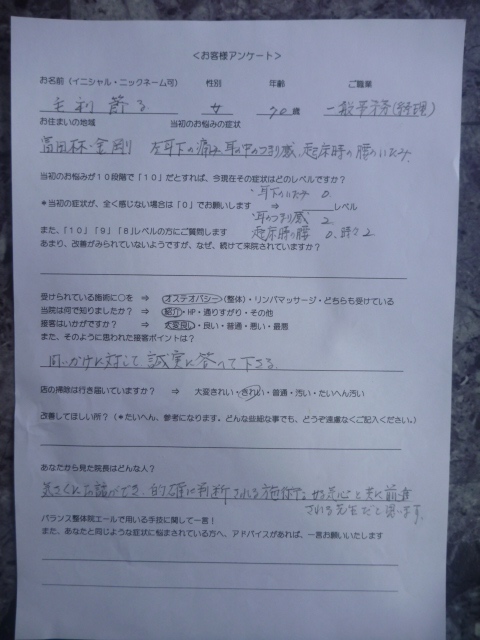 <お客様アンケート>
お名前（イニシャル・ニックネーム可） 性別 年齢 ご職業
毛利 節子 女 70歳 一般事務(経理)
お住まいの地域 当初のお悩みの症状
富田林・金剛 左耳下の痛み 耳の中のつまり感、起床時の腰のいたみ
当初のお悩みが10段階で「10」だとすれば、今現在その症状はどのレベルですか？
耳下のいたみ 0.
*当初の症状が、全く感じない場合は「0」でお願いします ⇒ レベル
耳のつまり感 2
また、「10」「9」「8」レベルの方にご質問します 起床時の腰 0、時々2
あまり、改善がみられていないようですが、なぜ、続けて来院されていますか？
受けられている施術に○を ⇒ オステオパシー（整体）・リンパマッサージ・どちらも受けている
当院は何で知りましたか？ ⇒ 紹介・HP・通りすがり・その他
接客はいかがですか？ ⇒ 大変良い・良い・普通・悪い・最悪
また、そのように思われた接客ポイントは？
問いかけに対して誠実に答えて下さる
店の掃除は行き届いていますか？ ⇒ 大変きれい・きれい・普通・汚い・たいへん汚い
改善してほしい所？（*たいへん、参考になります。どんな些細な事でも、どうぞ遠慮なくご記入ください。）
あなたから見た院長はどんな人？
気さくにお話ができ、的確に判断される施術 心と共に前進
される先生だと思います
バランス整体院エールで用いる手技に関して一言！
また、あなたと同じような症状に悩まされている方へ、アドバイスがあれば、一言お願いいたします